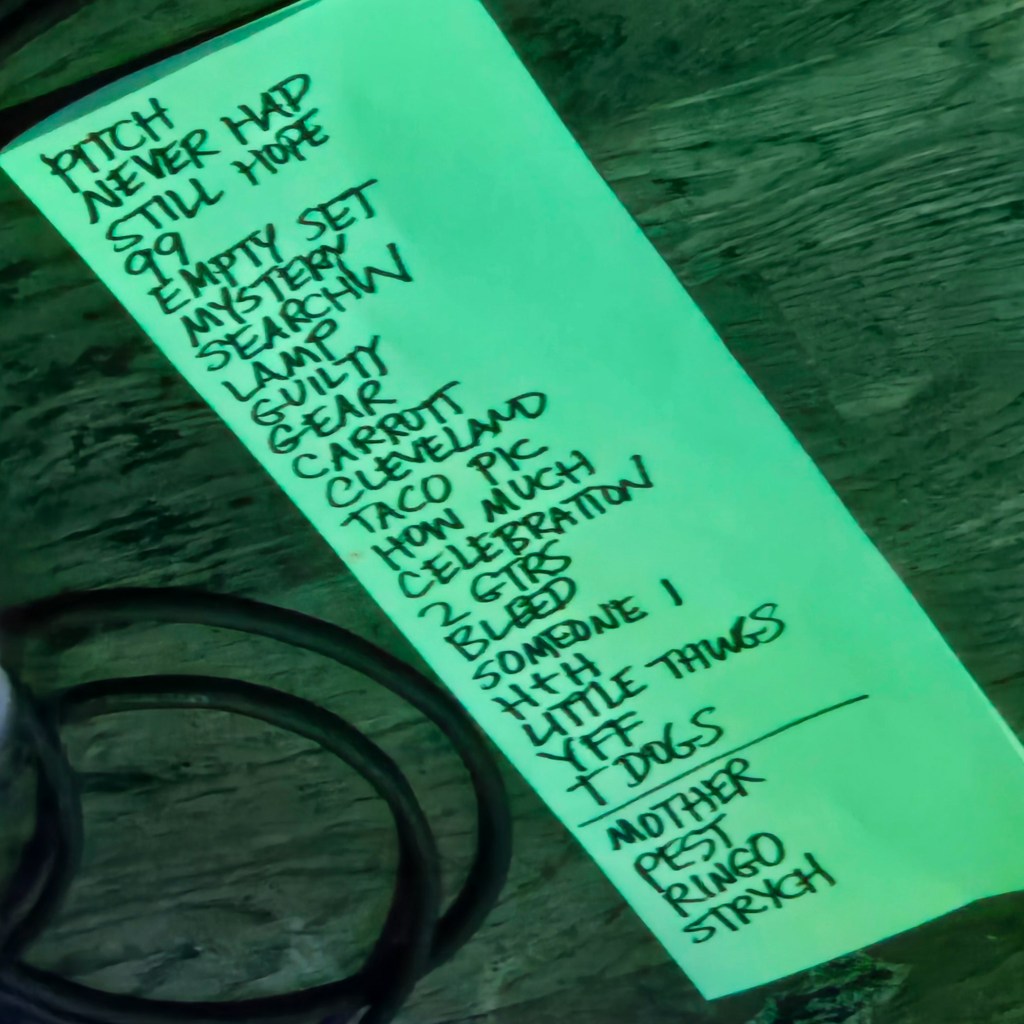 PITCH
NEVER HAD
STILL HOPE
99
EMPTY SET
MYSTERY
SEARCHIN
LAMP
GUILTY
GEAR
CARROTT
CLEVELAND
TACO PIC
HOW MUCH
CELEBRATION
2 GTRS
BLEED
SOMEONE I
H+H
LITTLE THINGS
YFF
T DOGS
MOTHER
PEST
RINGO
STRYCH